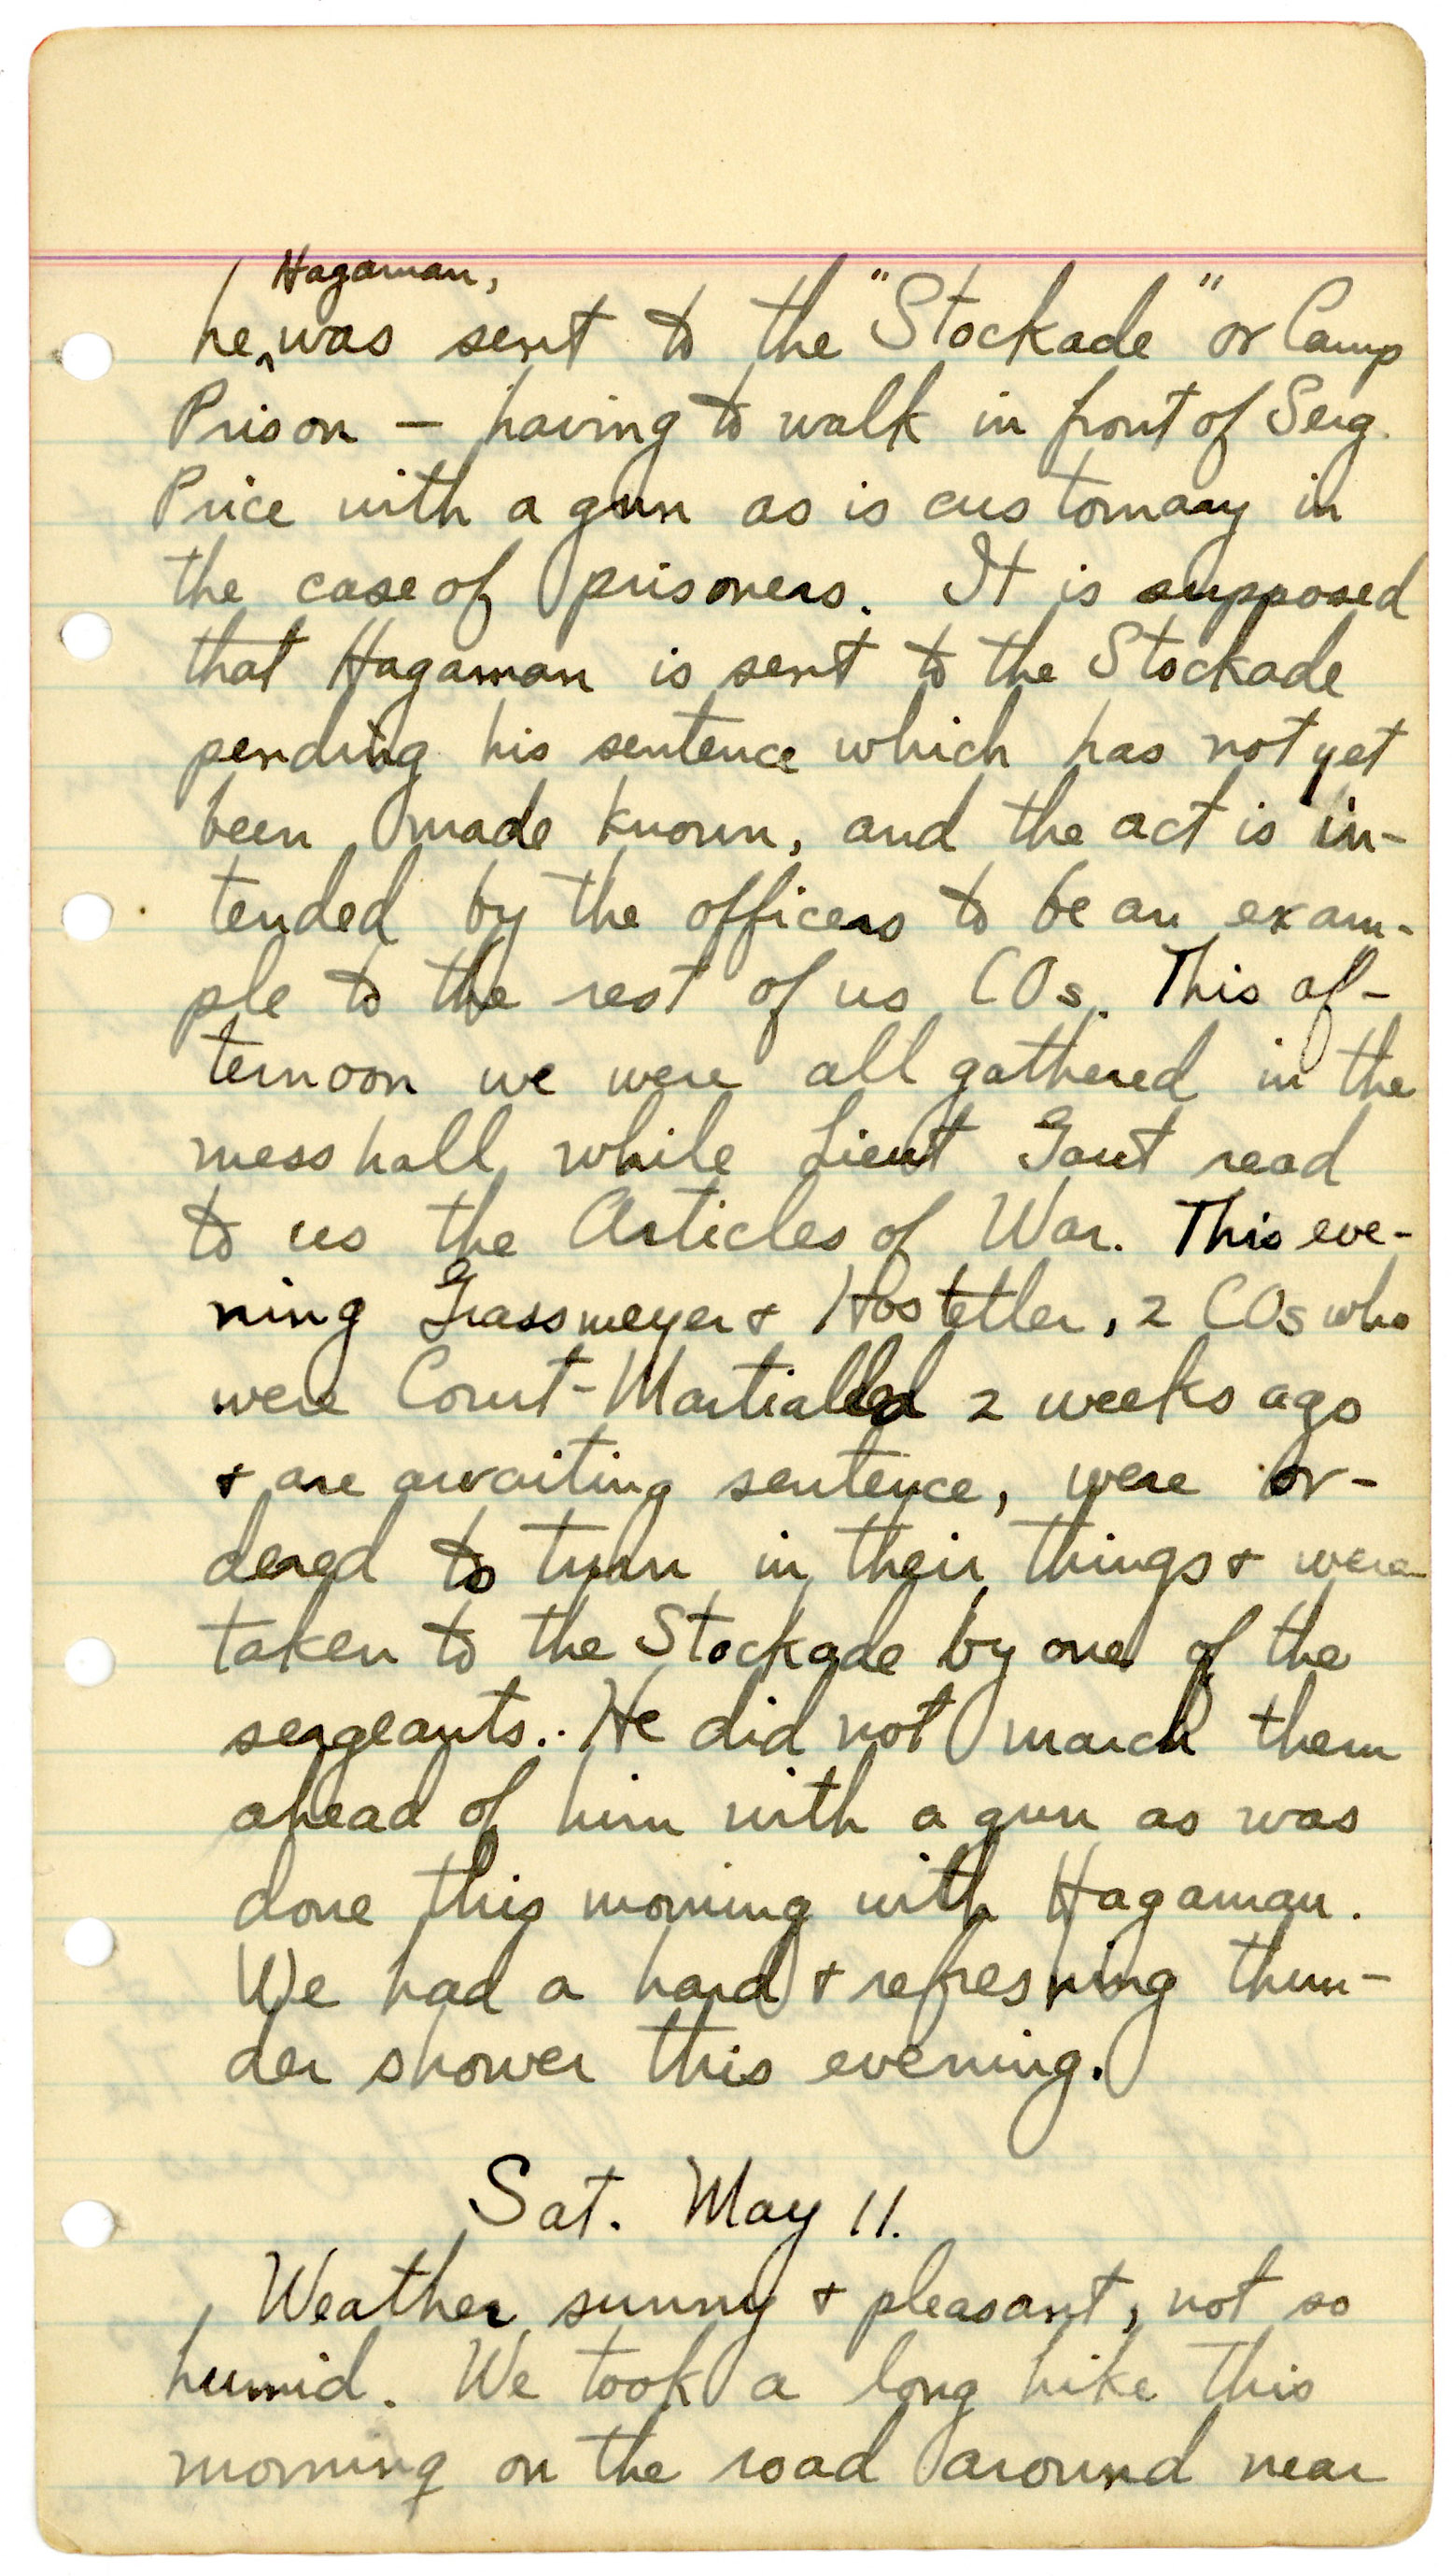 Hagaman,
he, was sent to the "Stockade" or Camp
Prison — having to walk in front of Serg.
Price with a gun as is customary in
the case of prisoners. It is supposed
that Hagaman is sent to the Stockade
pending his sentence which has not yet
been made known, and the act is in-
tended by the officers to be an exam-
ple to the rest of us COs. This af-
ternoon we were all gathered in the
mess hall while Lieut Gaut read
to us the Articles of War. This eve-
ning Grassmeyer & Hostetler, 2 COs who
were Court-Martialled 2 weeks ago
& are awaiting sentence, were or-
dered to turn in their things & were
taken to the Stockade by one of the
sergeants. He did not march them
ahead of him with a gun as was
done this morning with Hagaman.
We had a hard & refreshing thun-
der shower this evening.
Sat. May 11.
Weather sunny & pleasant, not so
humid. We took a long hike this
morning on the road around near